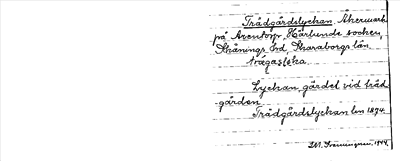 Trädgårdslyckan. Åkermark
på Arentorp, Hjärlunda socken,
Skånings hd, Skaraborgs län.
Lyckan, gärdet vid träd
gården.
Trädgårdslyckan lm 1894.
1944.